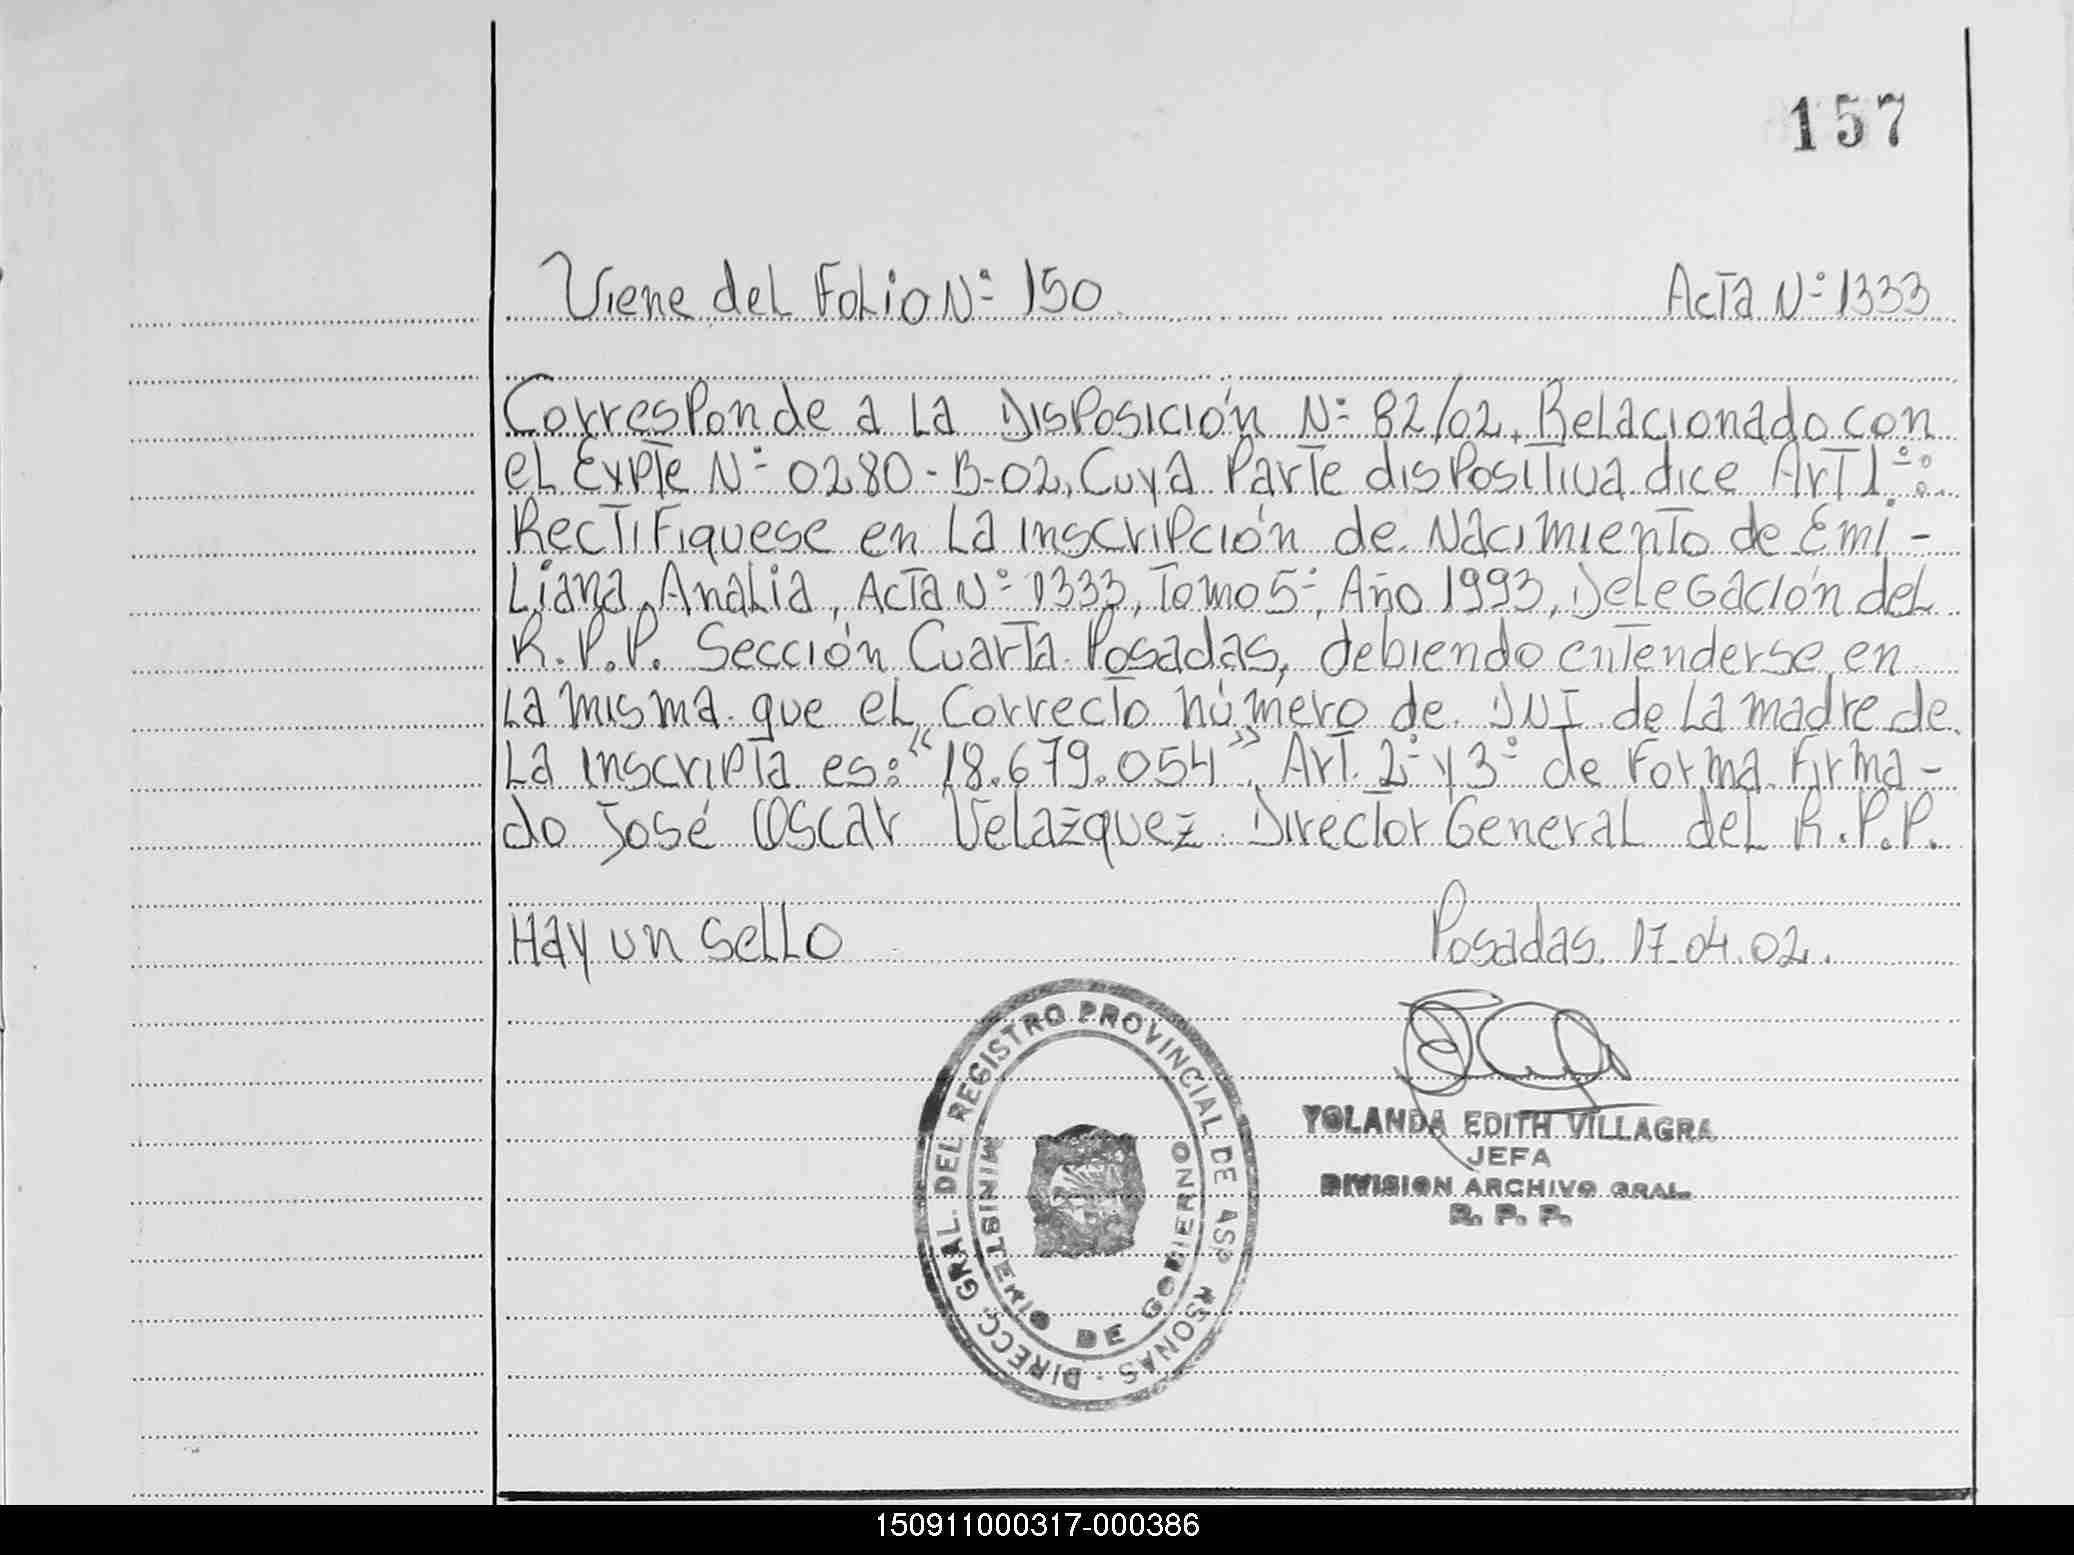 157
Viene del Folio Nº 150 Acta Nº 1333
Corresponde a La Disposición Nº 82/02, Relacionado con
el Expte Nº 0280-B-02, Cuya Parte dispositiva dice Art 1º:
Rectifiquese en La inscripción de Nacimiento de Emi-
Liana Analia, Acta Nº 1333, Tomo 5º, Año 1993, Delegación del
R.P.P. Sección Cuarta Posadas, debiendo entenderse en
La misma que el Correcto número de DNI de La madre de
La inscripta es: "18.679.054". Art. 2º y 3º de Forma Firma-
do José Oscar Velazquez Director General del R.P.P.
Hay un Sello Posadas. 17.04.02.
DIRECC. GRAL. DEL REGISTRO PROVINCIAL DE AS P RSONAS
MINISTERIO DE GOBIERNO
YOLANDA EDITH VILLAGRA
JEFA
DIVISION ARCHIVO GRAL.
R. P. P.
150911000317-000386